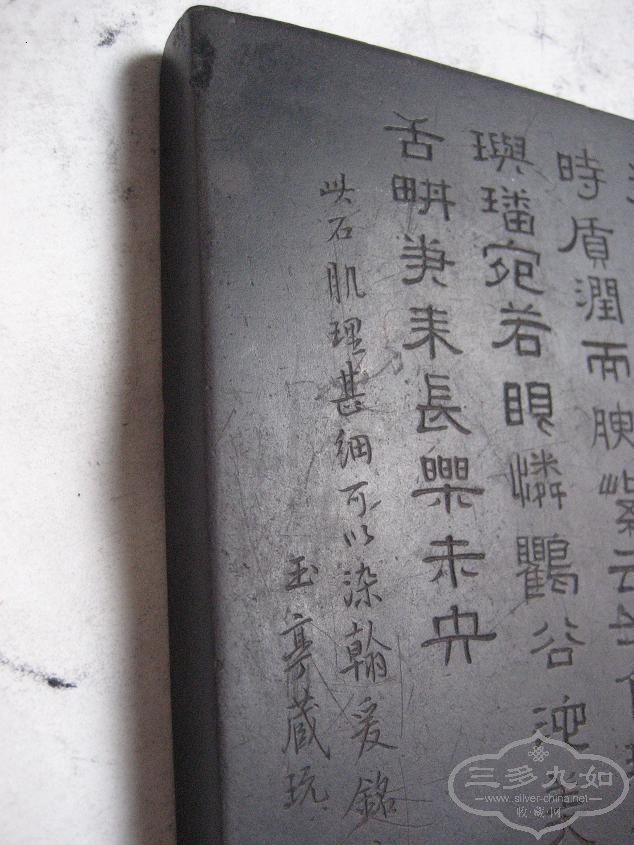 時質潤而腴紫云
璵璠宛若眼憐鸜谷迎
舌畊兼耒長樂未央
此石肌理甚細可以染翰爰銘
玉亭蔵玩
三多九如
www.silver-china.net
收·藏·网